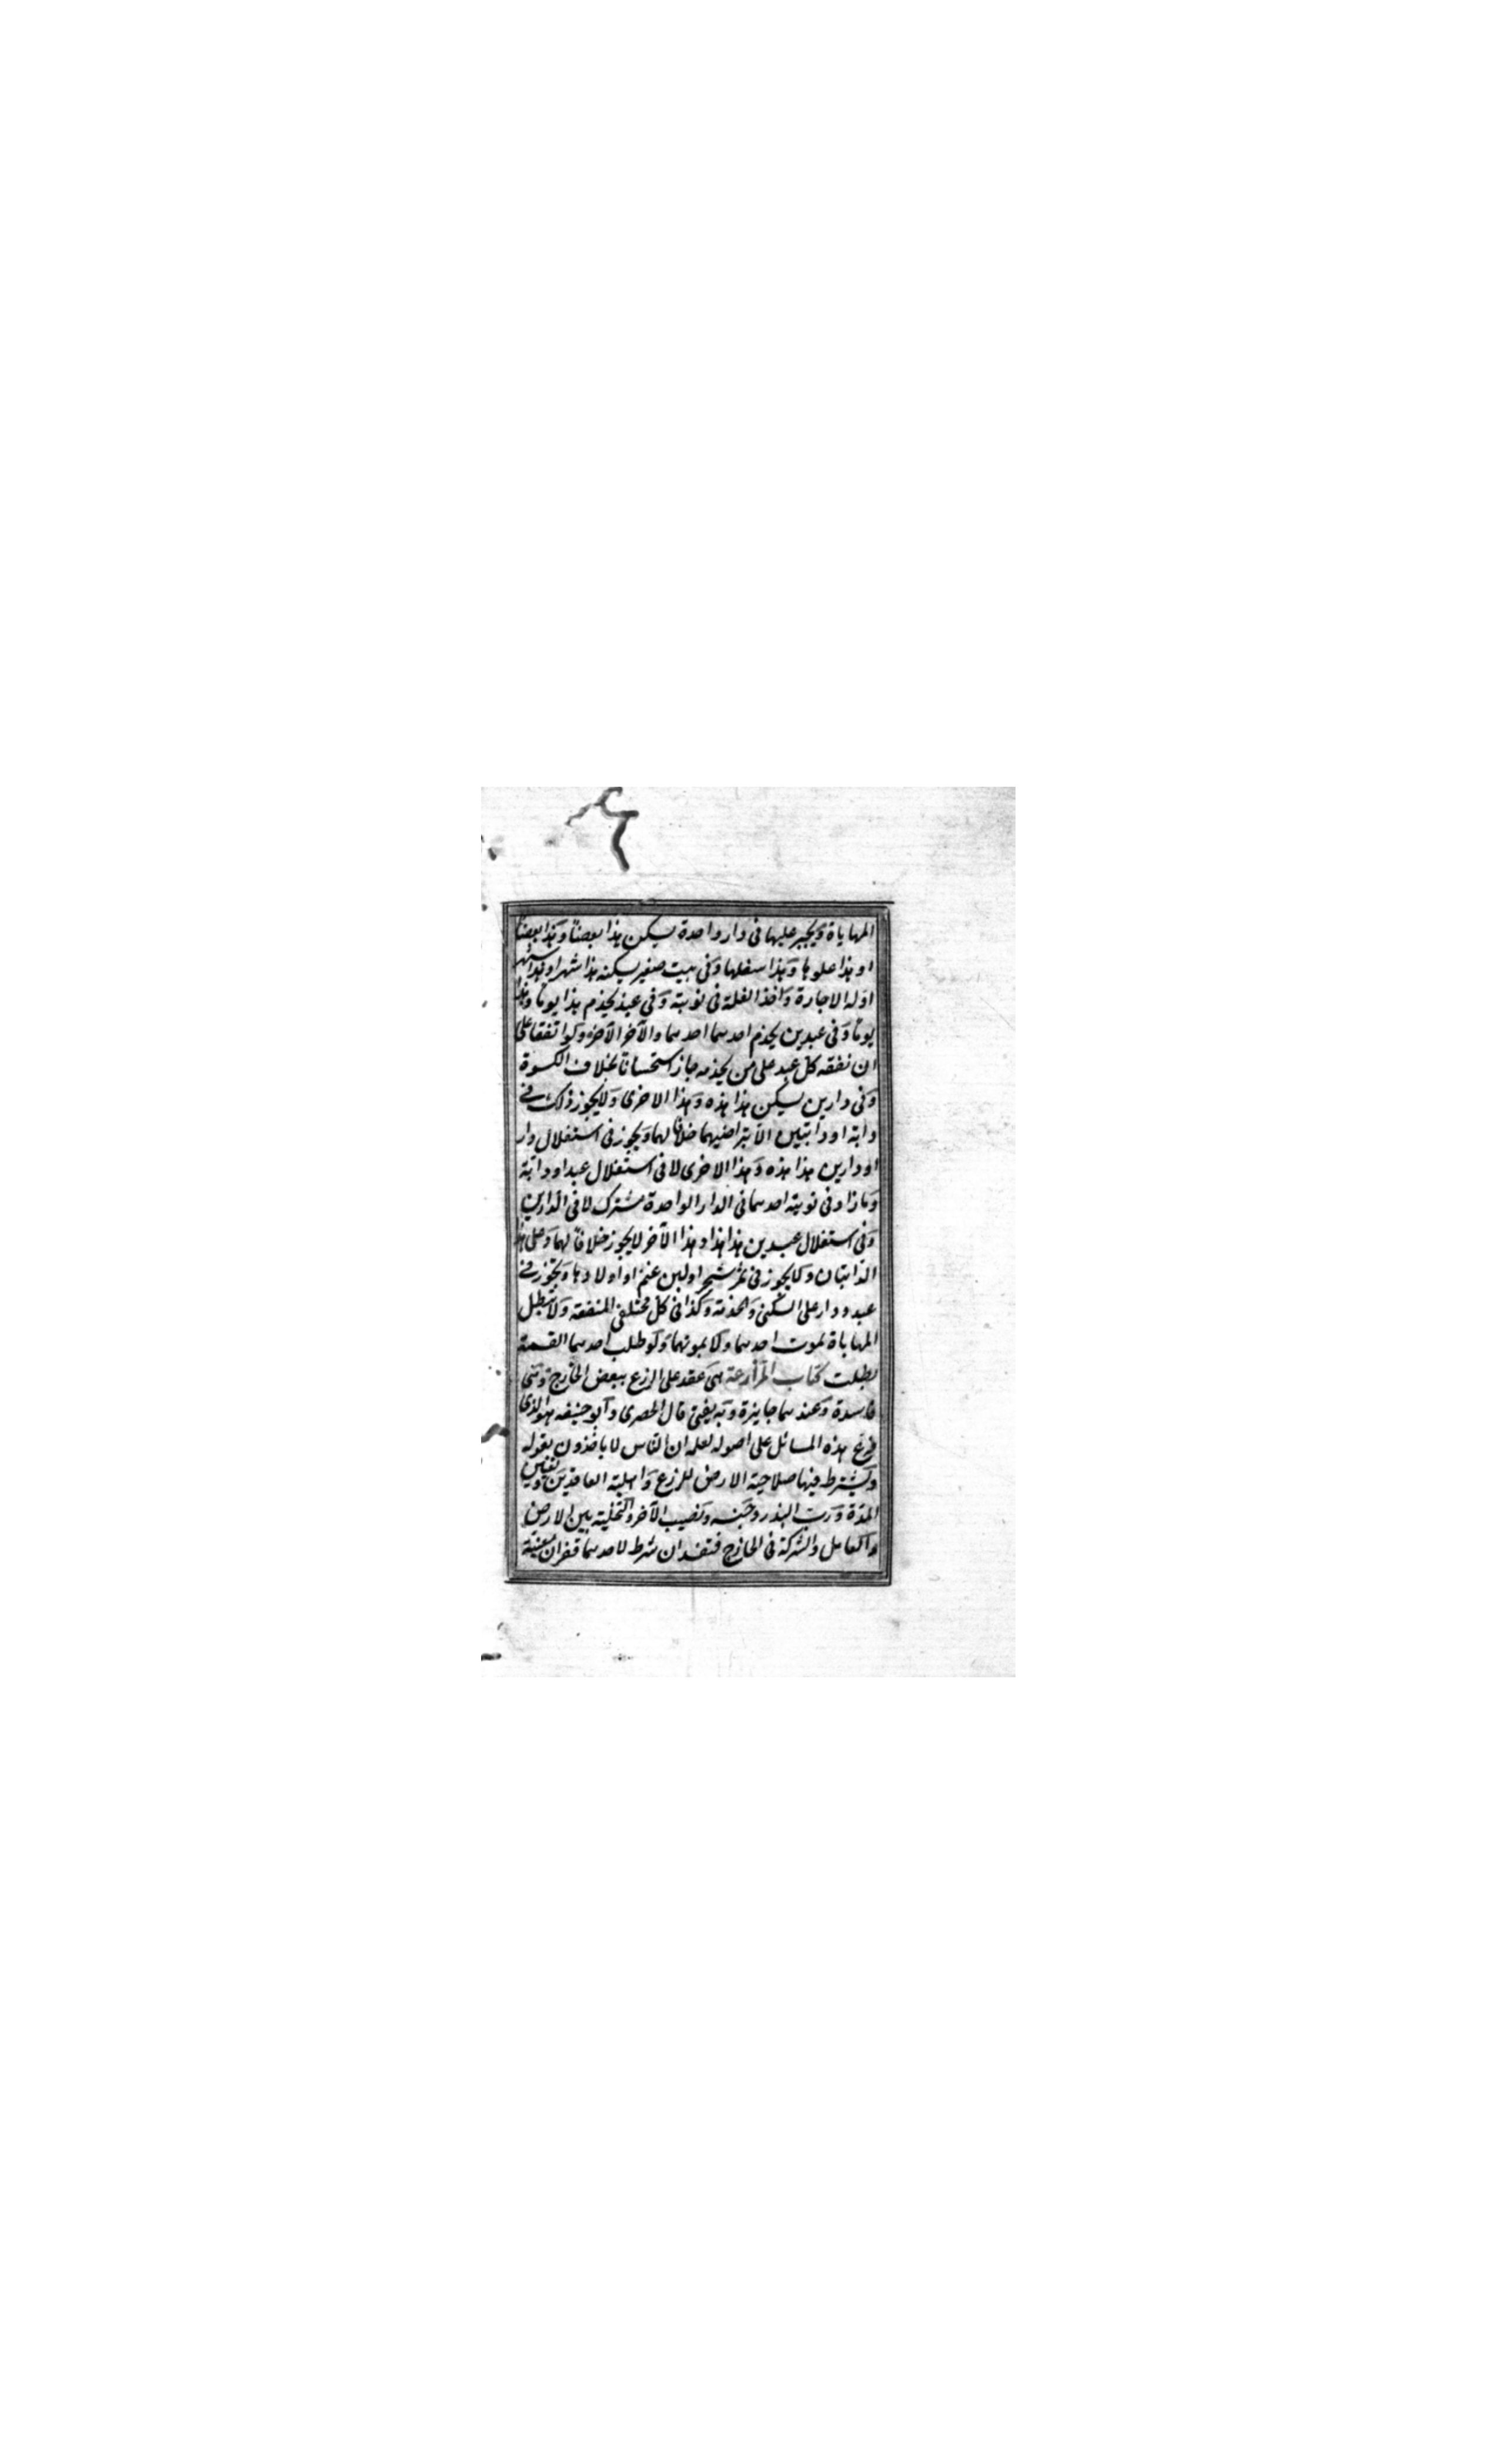 المهاياة ويجبر عليها فى دار واحدة يسكن هذا بعضا وهذا بعضا
او هذا علوها وهذا سفلها وفى بيت صغير يسكنه هذا شهرا وهذا شهرا
وله الاجارة واخذ الغلة فى نوبته وفى عبد يخدم هذا يوما وهذا
يوما وفى عبدين يخدم احدهما احدهما والآخر الآخر ولو اتفقا على
ان نفقة كل عبد على من يخدمه جاز استحسانا بخلاف الكسوة
وفى دارين يسكن هذا هذه وهذا الاخرى ولا يجوز ذلك فى
دابة او دابتين الا بتراضيهما خلافا لهما ويجوز فى استغلال دار
او دارين هذا هذه وهذا الاخرى لا فى استغلال عبد او دابة
وما زاد فى نوبة احدهما فى الدار الواحدة مشترك لا فى الدارين
وفى استغلال عبدين هذا هذا وهذا الآخر لا يجوز خلافا لهما وعلى هذا
الدابتان ولا يجوز فى ثمر شجر او لبن غنم او اولادها ويجوز فى
عبد ودار على السكنى والخدمة وكذا فى كل مختلفى المنفعة ولا تبطل
المهاياة بموت احدهما ولا بموتهما ولو طلب احدهما القسمة
بطلت كتاب المزارعة هى عقد على الزرع ببعض الخارج وهى
فاسدة وعندهما جايزة وبه يفتى قال الحصرى وابو حنيفه هو الذى
فرع هذه المسائل على اصوله لعلمه ان الناس لا ياخذون بقوله
ويشترط فيها صلاحية الارض للزرع واهلية العاقدين وتعيين
المدة ورب البذر وجنسه ونصيب الآخر والتخلية بين الارض
والعامل والشركة فى الخارج فتفسد ان شرط لاحدهما قفزان معينة